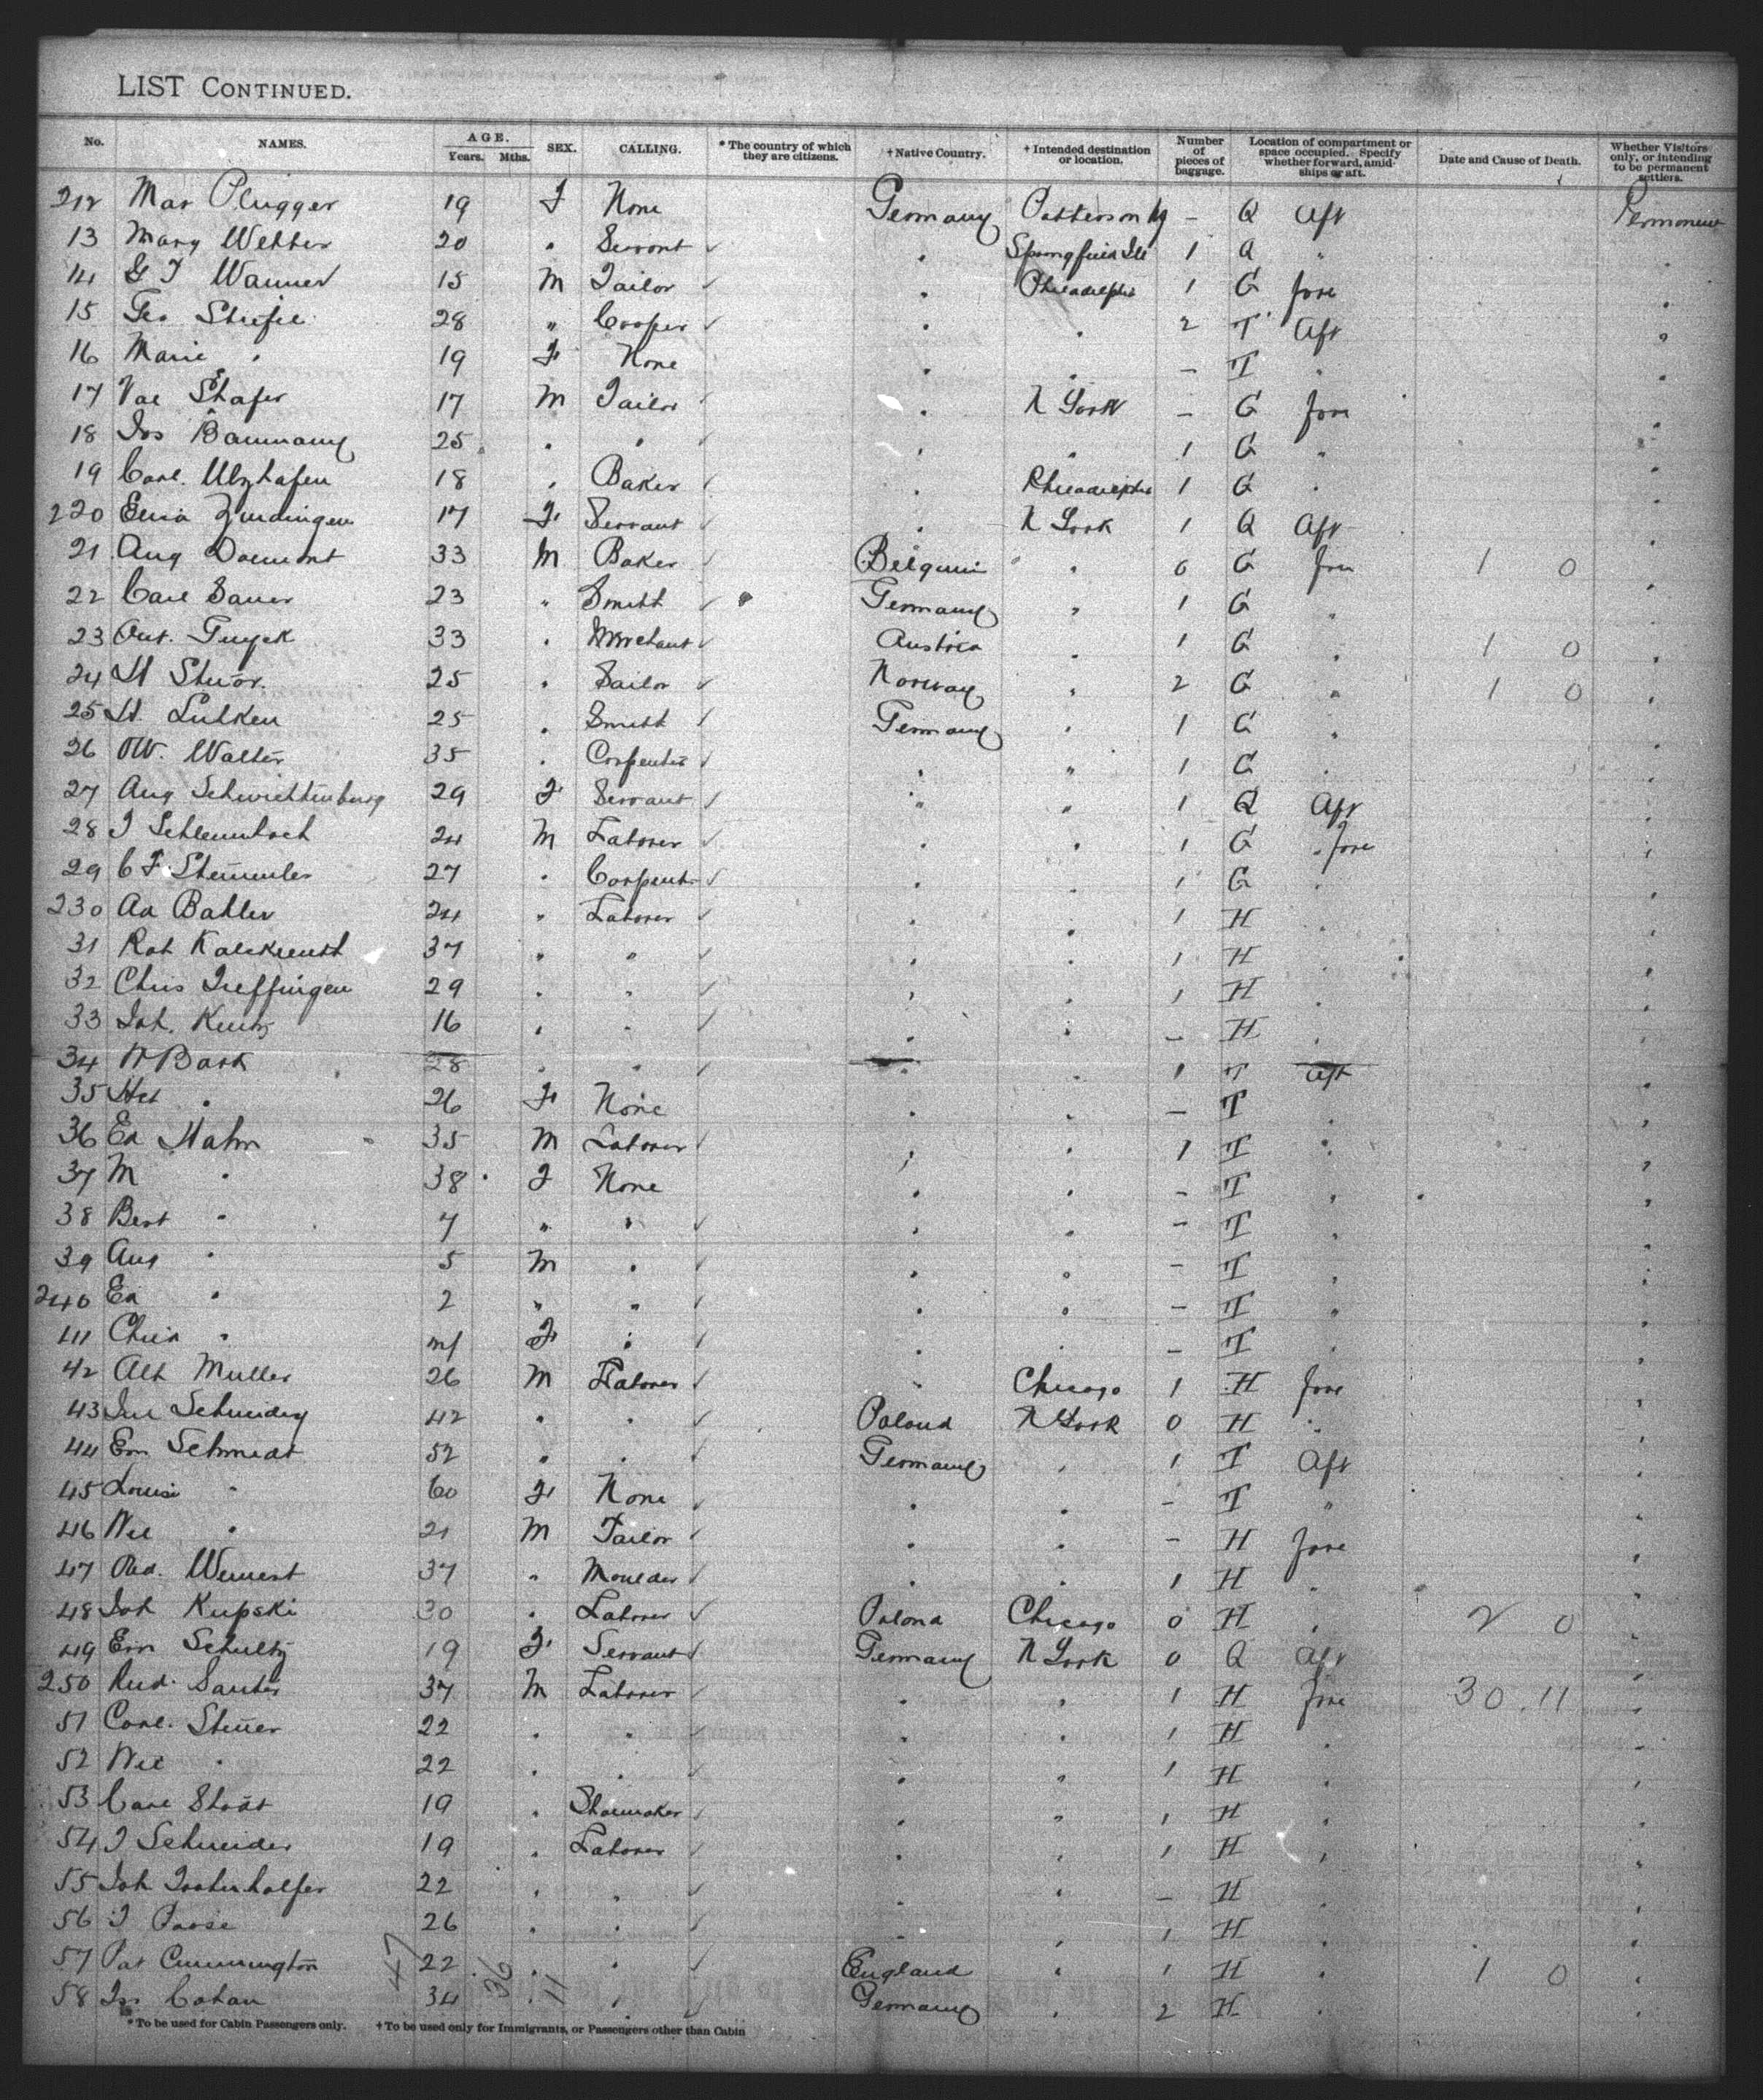 LIST CONTINUED.
No. NAMES. AGE. Years. Mths. SEX. CALLING. * The country of which they are citizens. † Native Country. † Intended destination or location. Number of pieces of baggage. Location of compartment or space occupied. Specify whether forward, amidships or aft. Date and Cause of Death. Whether Visitors only, or intending to be permanent settlers.
212 Mar Plugger 19 F None Germany Patterson NJ - Q Aft Permanent
13 Mary Webber 20 " Servant Springfield Ill 1 Q "
14 G F Wanner 15 M Tailor " Philadelphia 1 G fore "
15 Geo 28 " Cooper " " 2 T Aft "
16 Marie " 19 F None " " - T " "
17 Val Shafer 17 M Tailor " N York - G fore "
18 Jos Baumann 25 " " " " 1 G " "
19 Carl 18 " Baker " Philadelphia 1 G " "
220 Elisa 17 F Servant " N York 1 Q Aft "
21 Aug 33 M Baker Belgium " 0 G fore 1 0 "
22 Carl Sauer 23 " Smith Germany " 1 G " "
23 Ant. 33 " Merchant Austria " 1 G " 1 0 "
24 25 " Sailor Norway " 2 G " 1 0 "
25 H. Lutken 25 " Smith Germany " 1 G " "
26 W. Walter 35 " Carpenter " " 1 G " "
27 Aug Schwichtenburg 29 F Servant " " 1 Q Aft "
28 J Schlembach 24 M Laborer " " 1 G fore "
29 C F Stemmler 27 " Carpent " " 1 G " "
230 Ad Bahler 24 " Laborer " " 1 H " "
31 Rob 37 " " " " 1 H " "
32 Chris Treffingen 29 " " " " 1 H " "
33 Joh. Kuntz 16 " " " " - H " "
34 28 " " " " 1 T Aft "
35 " 26 F None " " - T " "
36 Ed Hahn 35 M Laborer " " 1 T " "
37 M " 38 F None " " - T " "
38 Bert " 7 " " " " - T " "
39 Aug " 5 M " " " - T " "
240 Ed " 2 " " " " - T " "
41 " inf F " " " - T " "
42 Alb Muller 26 M Laborer " Chicago 1 H fore "
43 42 " " Poland N York 0 H " "
44 Em Schmidt 52 " " Germany " 1 T Aft "
45 Louise " 60 F None " " - T " "
46 " 21 M Tailor " " - H fore "
47 37 " Moulder " " 1 H " "
48 Joh Kupski 30 " Laborer Poland Chicago 0 H " 2 0 "
49 Em Schultz 19 F Servant Germany N York 0 Q Aft "
250 Rud. Sauter 37 M Laborer " " 1 H fore 30.11 "
51 Carl. Stuer 22 " " " " 1 H " "
52 " 22 " " " " 1 H " "
53 Carl 19 " Shoemaker " " 1 H " "
54 J Schneider 19 " Laborer " " 1 H " "
55 Joh 22 " " " " - H " "
56 J 26 " " " " 1 H " "
57 Pat Cunnington 22 " " England " 1 H " 1 0 "
58 Cohan 34 " " Germany " 2 H " "
47 36 11
* To be used for Cabin Passengers only. † To be used only for Immigrants, or Passengers other than Cabin